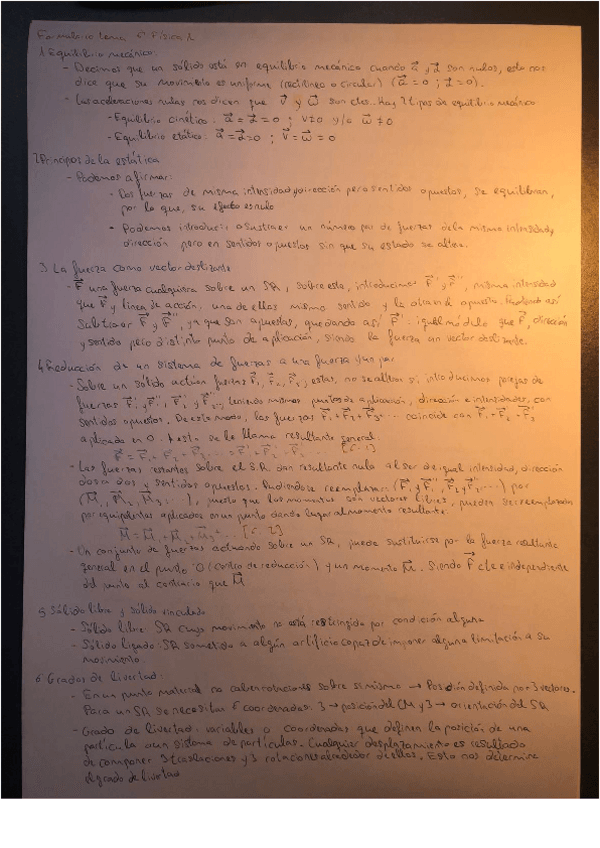 Formulario tema 6 Física 1
1 Equilibrio mecánico:
- Decimos que un sólido está en equilibrio mecánico cuando a⃗ y α⃗ son nulos, esto nos
dice que su movimiento es uniforme (rectilíneo o circular) (a⃗ = 0 ; α⃗ = 0).
- Las aceleraciones nulas nos dicen que v⃗ y ω⃗ son ctes. Hay 2 tipos de equilibrio mecánico
- Equilibrio cinético: a⃗ = α⃗ = 0 ; v≠0 y/o ω⃗ ≠ 0
- Equilibrio estático: a⃗ = α⃗ = 0 ; v⃗ = ω⃗ = 0
2 Principios de la estática
- Podemos afirmar:
• Dos fuerzas de misma intensidad y dirección pero sentidos opuestos, se equilibran,
por lo que, su efecto es nulo
• Podemos introducir o sustraer un número par de fuerzas de la misma intensidad,
dirección pero en sentidos opuestos sin que su estado se altere.
3 La fuerza como vector deslizante
- F⃗ una fuerza cualquiera sobre un SR, sobre esta, introducimos F⃗' y F⃗'', misma intensidad
que F⃗ y línea de acción, una de ellas mismo sentido y la otra el opuesto. así
F⃗ y F⃗'', ya que son opuestas, quedando así F⃗' = igual módulo que F⃗, dirección
y sentido pero distinto punto de aplicación, siendo la fuerza un vector deslizante.
4 Reducción de un sistema de fuerzas a una fuerza y un par
- Sobre un sólido actúan fuerzas F⃗₁, F⃗₂, F⃗₃, estas, no se altera si introducimos parejas de
fuerzas F⃗₁' y F⃗₁'', F⃗₂' y F⃗₂''... teniendo mismos puntos de aplicación, dirección e intensidades, con
sentidos opuestos. De este modo, las fuerzas F⃗₁+F⃗₂+F⃗₃... coincide con F⃗₁' F⃗₂' F⃗₃'
aplicada en O. A esta se le llama resultante general:
F⃗ = F⃗₁ + F⃗₂ + F⃗₃... = F⃗₁' + F⃗₂' + F⃗₃'... [6.1]
- Las fuerzas restantes sobre el SR dan resultante nula al ser de igual intensidad, dirección
dos a dos y sentidos opuestos. Pudiéndose reemplazar (F⃗₁ y F⃗₁'', F⃗₂ y F⃗₂''...) por
(M⃗₁, M⃗₂, M⃗₃...), puesto que los momentos son vectores libres, pueden ser reemplazados
por equipolentes aplicados en un punto dando lugar al momento resultante.
M⃗ = M⃗₁ + M⃗₂ + M⃗₃... [6.2]
- Un conjunto de fuerzas actuando sobre un SR, puede sustituirse por la fuerza resultante
general en el punto O (centro de reducción) y un momento M⃗. Siendo F⃗ cte e independiente
del punto al contrario que M⃗
5 Sólido libre y sólido vinculado
- Sólido libre: SR cuyo movimiento no está restringido por condición alguna
- Sólido ligado: SR sometido a algún artificio capaz de imponer alguna limitación a su
movimiento.
6 Grados de livertad:
- En un punto material no caben rotaciones sobre si mismo → Posición definida por 3 vectores.
Para un SR se necesitan 6 coordenadas. 3 → posición del CM y 3 → orientación del SR
- Grado de livertad: variables o coordenadas que definen la posición de una
partícula o un sistema de partículas. Cualquier desplazamiento es resultado
de componer 3 traslaciones y 3 rotaciones alrededor de ellos. Esto nos determina
el grado de livertad